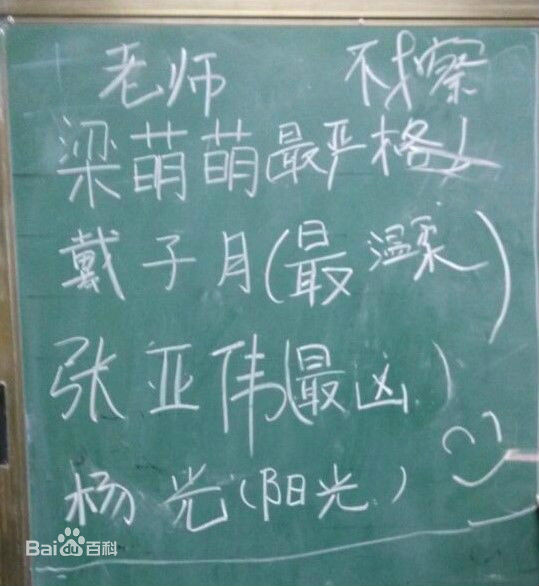 老师 不擦
梁萌萌(最严格)
戴子月(最温柔)
张亚伟(最凶)
杨光(阳光)
Baidu百科